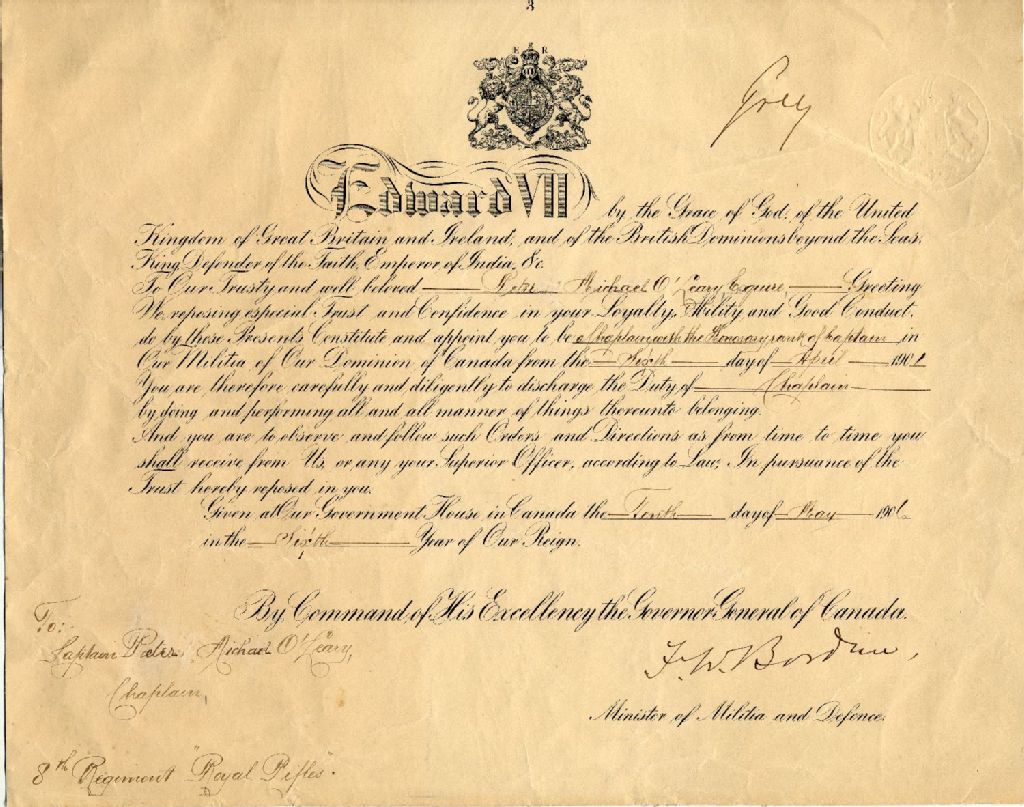 3
E R
Grey
Edward VII by the Grace of God, of the United
Kingdom of Great Britain and Ireland, and of the British Dominions beyond the Seas,
King Defender of the Faith, Emperor of India, &c.
To Our Trusty and well beloved Peter Michael O'Leary Esquire, Greeting
We, reposing especial Trust and Confidence in your Loyalty, Ability and Good Conduct,
do by these Presents Constitute and appoint you to be a Chaplain with the Honorary rank of Captain in
Our Militia of Our Dominion of Canada from the Sixth day of April 190
You are therefore carefully and diligently to discharge the Duty of Chaplain
by doing and performing all and all manner of things thereunto belonging.
And you are to observe and follow such Orders and Directions as from time to time you
shall receive from Us, or any your Superior Officer, according to Law, In pursuance of the
Trust hereby reposed in you.
Given at Our Government House in Canada the Tenth day of May 190
in the Sixth Year of Our Reign.
By Command of His Excellency the Governor General of Canada.
To:-
Captain Peter Michael O'Leary,
F. W. Borden,
Chaplain,
Minister of Militia and Defence.
8th Regiment "Royal Rifles".